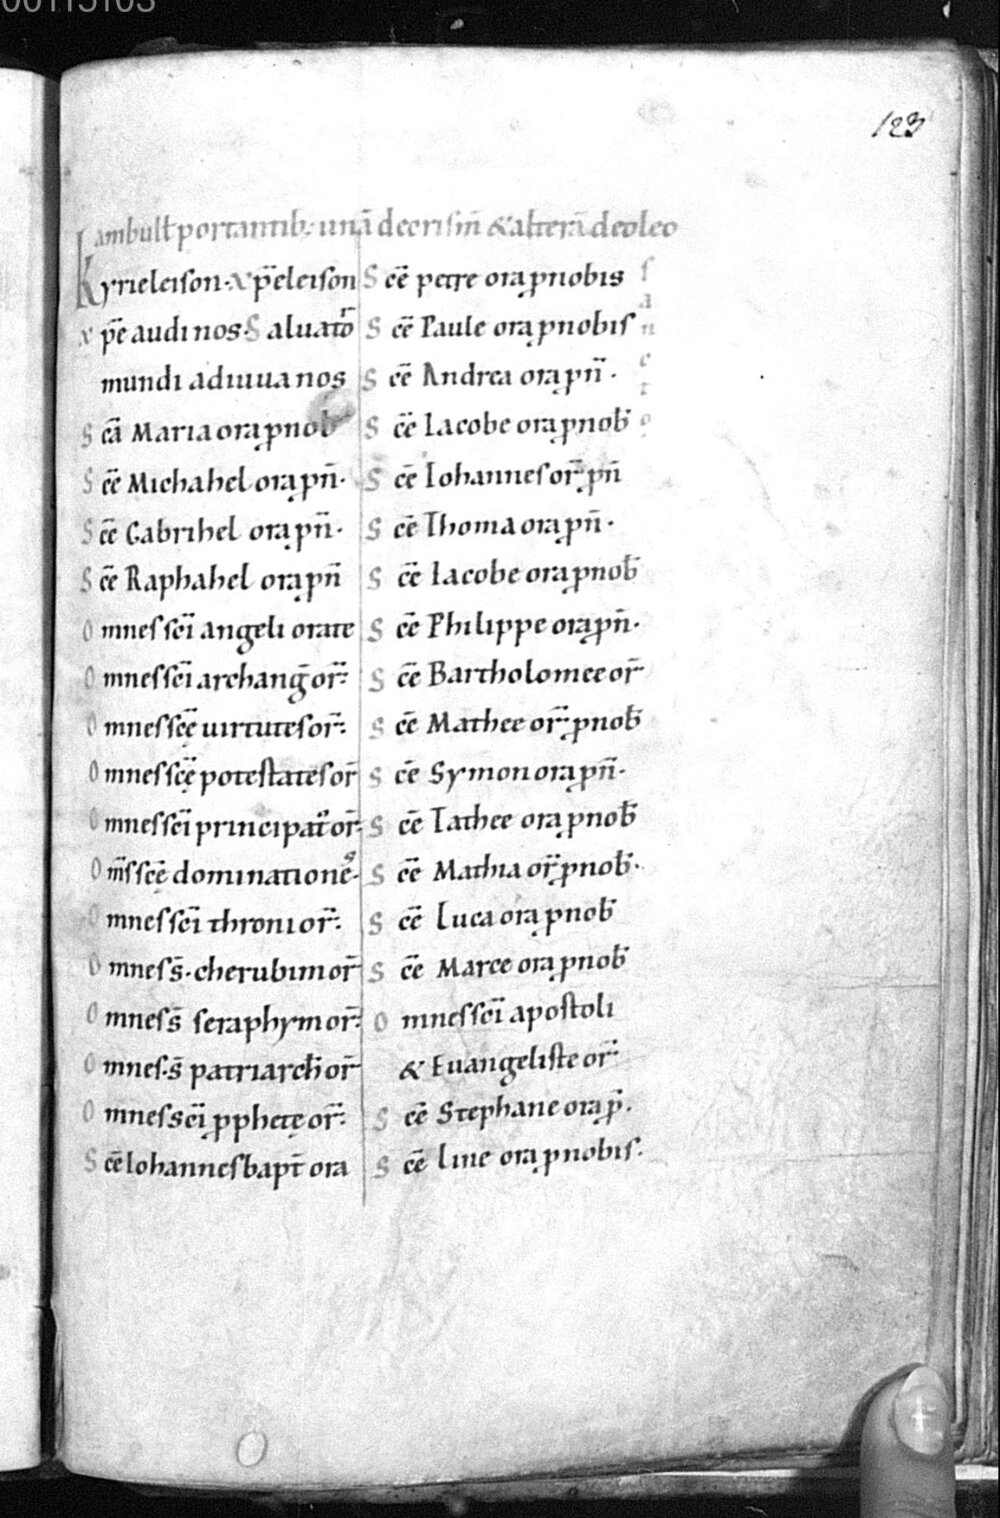 00115103
123
ambult portantib; unā decrism̄ & alterā de oleo
Kyrieleison· xp̄eeleison
xp̄e audi nos· Saluator̄
mundi adiuua nos
Scā Maria ora pnob̄
Scē Michahel ora pn̄·
Scē Gabrihel ora pn̄·
Scē Raphahel ora pn̄
Omnes sc̄i angeli orate
Omnes sc̄i archanḡ or̄:
Omnes sc̄ę uirtutes or̄:
Omnes sc̄ę potestates or̄
Omnes sc̄i principat̄ or̄·
Om̄s sc̄ē dominationēˢ·
Omnes sc̄i throni or̄:
Omnes s̄· cherubim or̄
Omnes s̄ seraphym or̄:
Omnes· s̄ patriarch̄ or̄
Omnes sc̄i pphetę or̄:
Scē Iohannes bapt̄ ora
Scē petre ora pnobis
Scē Paule ora pnobis
Scē Andrea ora pn̄·
Scē Iacobe ora pnob̄
Scē Iohannes or̄ pn̄
Scē Thoma ora pn̄·
Scē Iacobe ora pnob̄
Scē Philippe ora pn̄·
Scē Bartholomee or̄
Scē Mathee or̄ pnob̄
Scē Symon ora pn̄·
Scē Tathee ora pnob̄
Scē Mathia or̄ pnob̄·
Scē Luca ora pnob̄
Scē Marce ora pnob̄
Omnes sc̄i apostoli
& Euangeliste or̄
Scē Stephane ora p̄·
Scē Line ora pnobis·